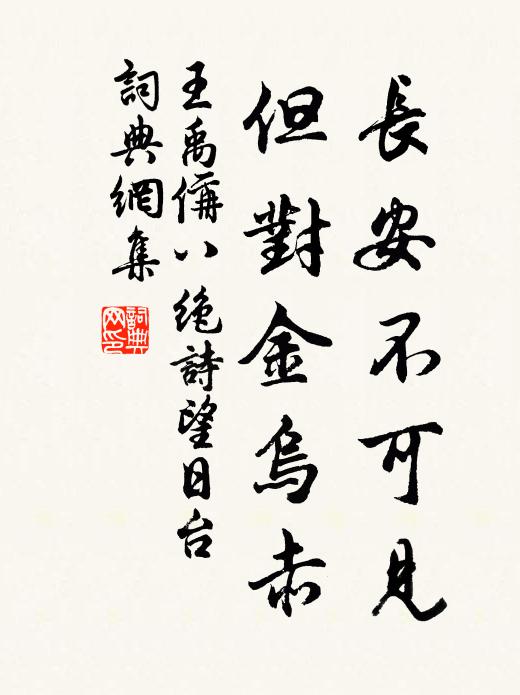 長安不可見
但對金烏赤
王禹偁八絕詩望日台
詞典網集
詞典网印